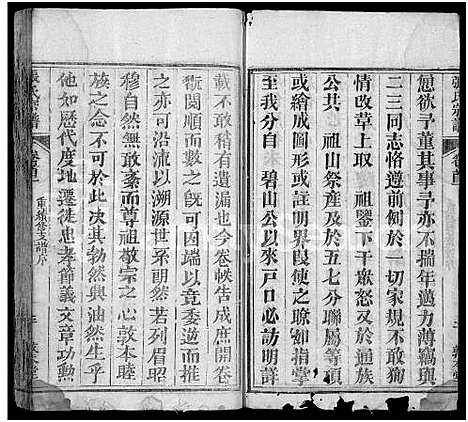 張氏宗譜
卷首
愿欲予董其事予亦不揣年邁力薄竊與
二三同志恪遵前例於一切家規不敢徇
情改草上取 祖鑒下干眾怒又於通族
公共 祖山祭產及於五七分聯屬等項
或繪成圖形或註明界叚使之瞭如指掌
至我分自 碧山公以來戶口必詳訂
載不敢稍有遺漏也今卷帙告成庶開卷
翫閱順而數之既可因端以竟委逆而推
之亦可沿流以溯源世系朗然了若列眉昭
穆自然無敢紊而尊祖敬宗之心敦本睦
族之念不於此決其勃然與油然生乎
他如歷代度地遷徙忠孝節義文章功勲
張氏宗譜
卷首
重續修支譜序